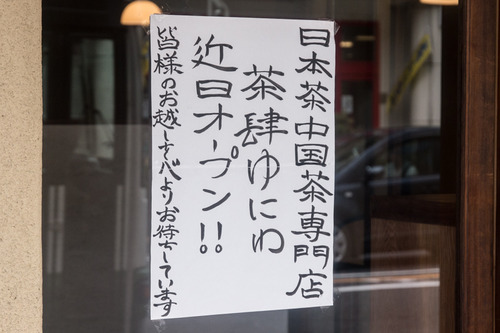 日本茶中国茶専門店
茶肆ゆにわ
近日オープン!!
皆様のお越しを心よりお待ちしています